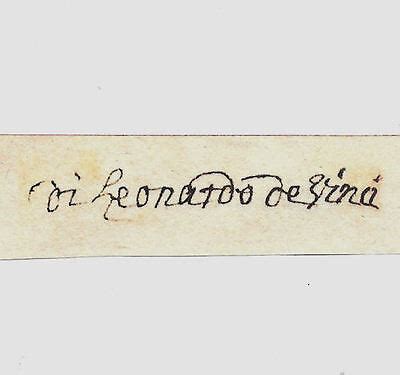 di Leonardo de Vinci